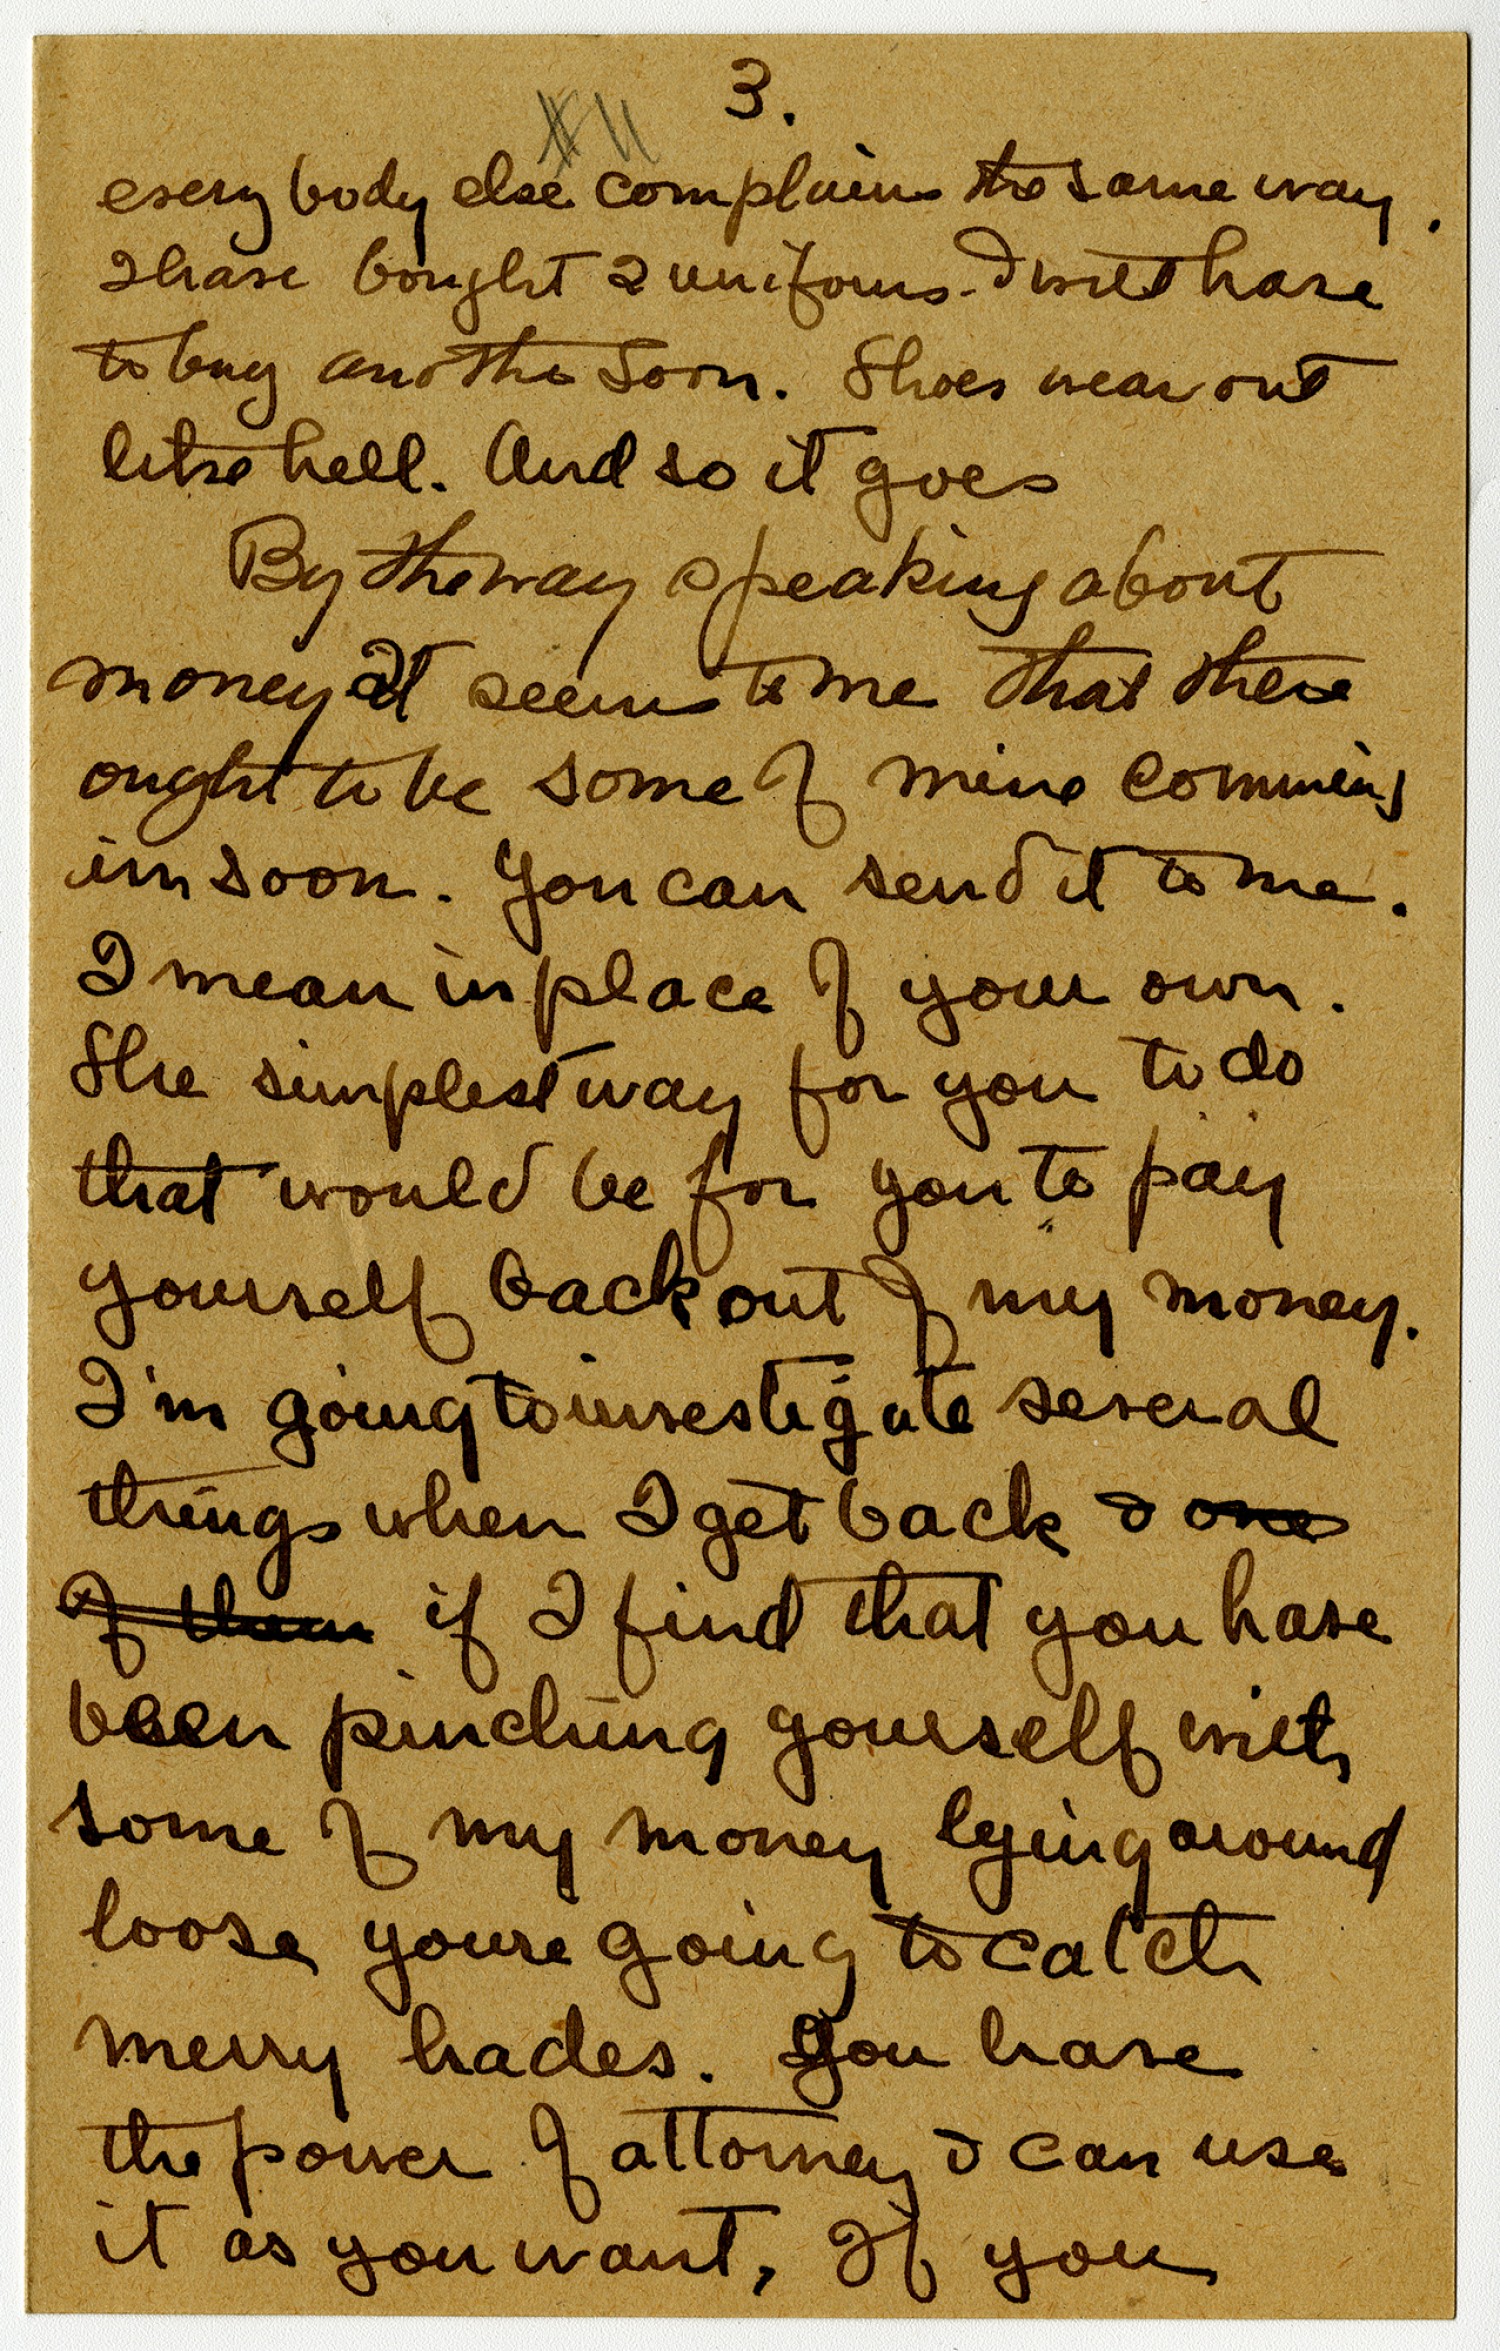 3.
XII
everybody else complains the same way.
I have bought 2 uniforms. I will have
to buy another soon. Shoes wear out
like hell. And so it goes
By the way speaking about
money It seems to me that there
ought to be some of mine comming
in soon. You can send it to me.
I mean in place of your own.
The simplest way for you to do
that would be for you to pay
yourself back out of my money.
I'm going to investigate several
things when I get back & one
of them if I find that you have
been pinching yourself with
some of my money lying around
loose youre going to catch
merry hades. You have
the power of attorney & can use
it as you want, If you